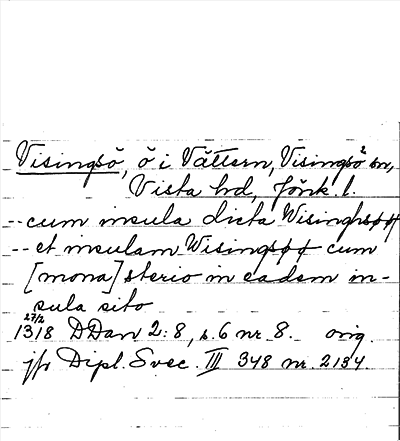 Visingsö, ö i Vättern, Visingsö sn,
Vista hd, Jönk. l.
-- cum insula dicta Wisinghsøø
-- et insulam Wisingsøø cum
[mona]sterio in eadem in-
sula sito
27/2
1318 DDan 2:8, s. 6 nr 8. orig.
jfr Dipl. Svec. III 348 nr. 2134.